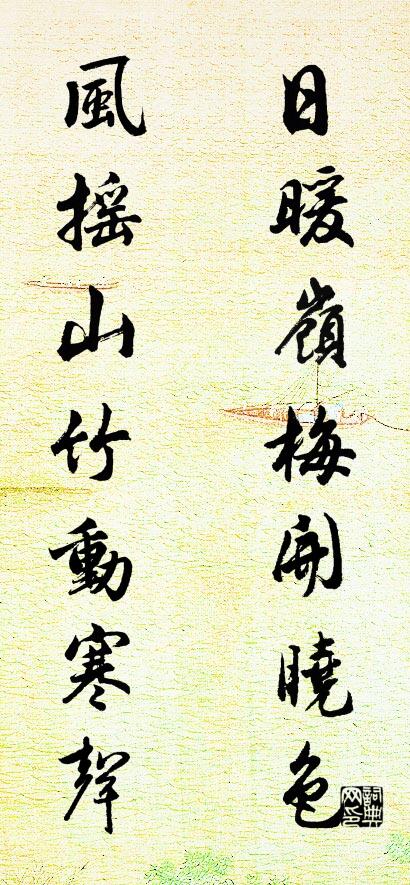 日暖嶺梅開曉色
風摇山竹動寒聲
詞典网印